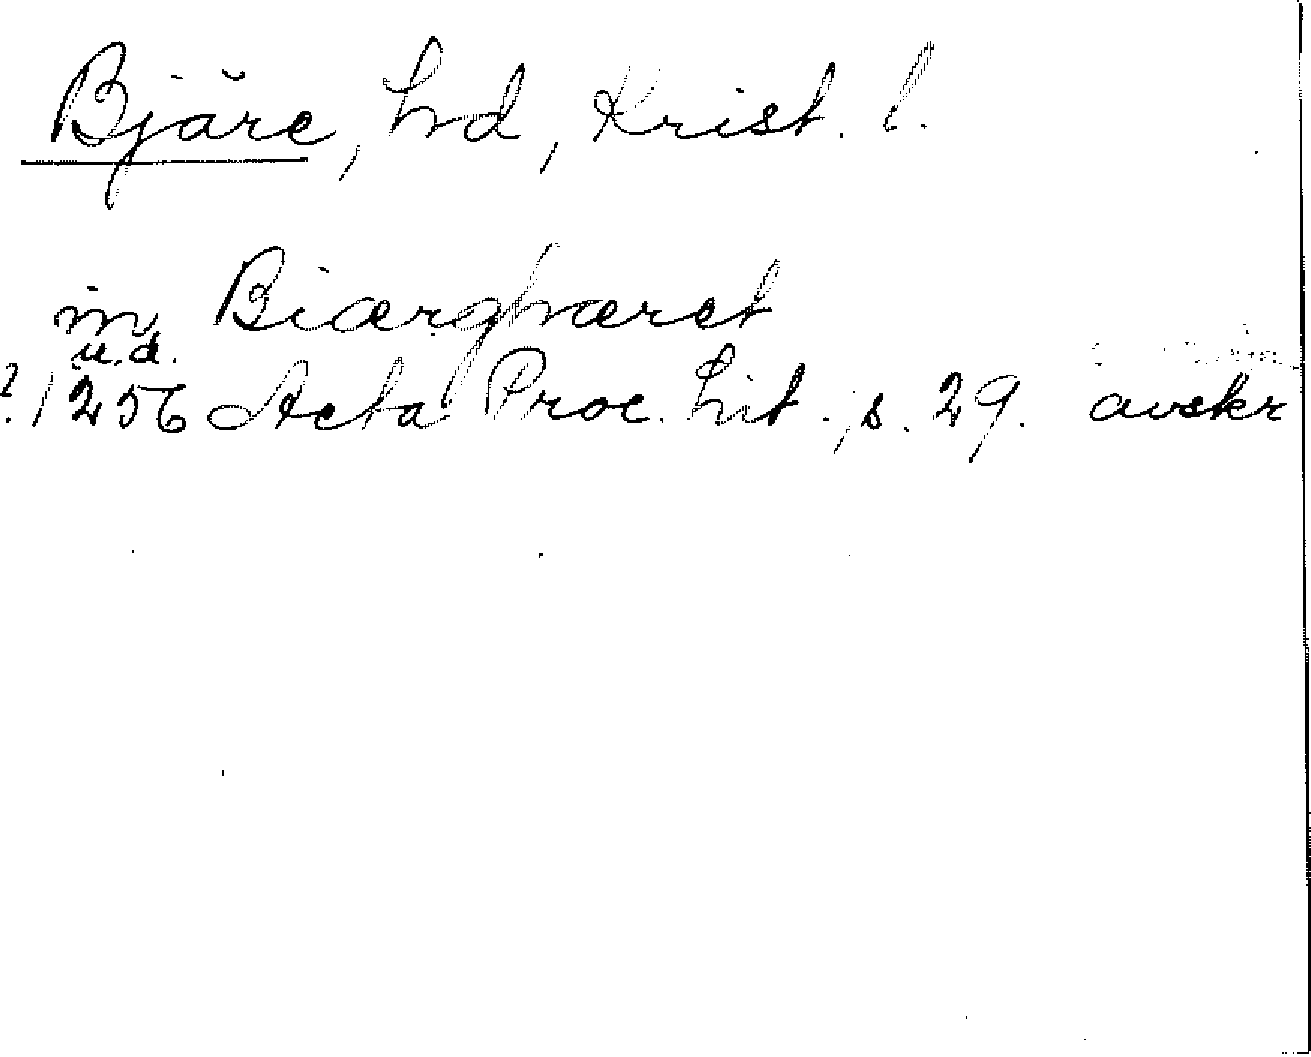 Bjäre, hd, Krist. l.
in Biærghæret
u.d.
?/1256 Acta Proc. Lit., s. 29. avskr